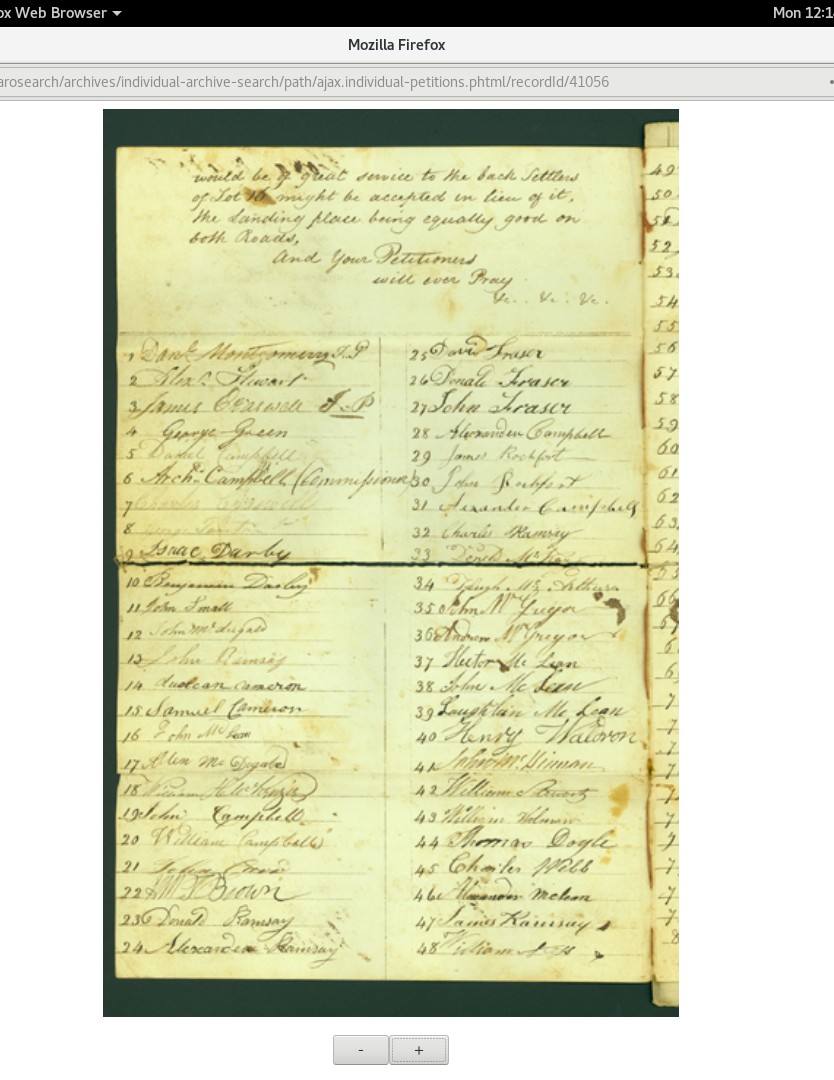 ox Web Browser
Mon 12:1
Mozilla Firefox
arosearch/archives/individual-archive-search/path/ajax.individual-petitions.phtml/recordId/41056
would be of great service to the back Settlers
of Lot 16 might be accepted in lieu of it,
the Landing place being equally good on
both Roads,
And Your Petitioners
will ever Pray
&c. &c. &c.
1 Danl. Montgomery J.P
2 Alexr. Stewart
3 James J-P
4 George Green
5 Daniel Campbell
6 Archd. Campbell (Commissioner)
7 Charles
8 George
9 Isaac Darby
10 Benjamin Darby
11 John Small
12 John McDugald
13 John Ramsay
14 duncan cameron
15 Samuel Cameron
16 John McLean
17 Allen Mc Dugald
18 William
19 John Campbell
20 William Campbell
21 John
22 Brown
23 Donald Ramsay
24 Alexander Ramsay
25 David Fraser
26 Donald Fraser
27 John Fraser
28 Alexander Campbell
29 James Rochfort
30 John Rochfort
31 Alexander Campbell
32 Charles Ramsay
33 Donald
34 Hugh Mc Arthur
35 John McGregor
36 Andrew McGregor
37 Hector Mc Lean
38 John Mc Lean
39 Laughlin Mc Lean
40 Henry Waldron
41 John Mc
42 William Stewart
43 William Holman
44 Thomas Doyle
45 Charles Webb
46 Alexander Mclean
47 James Ramsay
48 William
49
50
51
52
53
54
55
56
57
58
59
60
61
62
63
64
65
66
67
6
6
7
7
7
7
7
7
7
7
7
8
- +